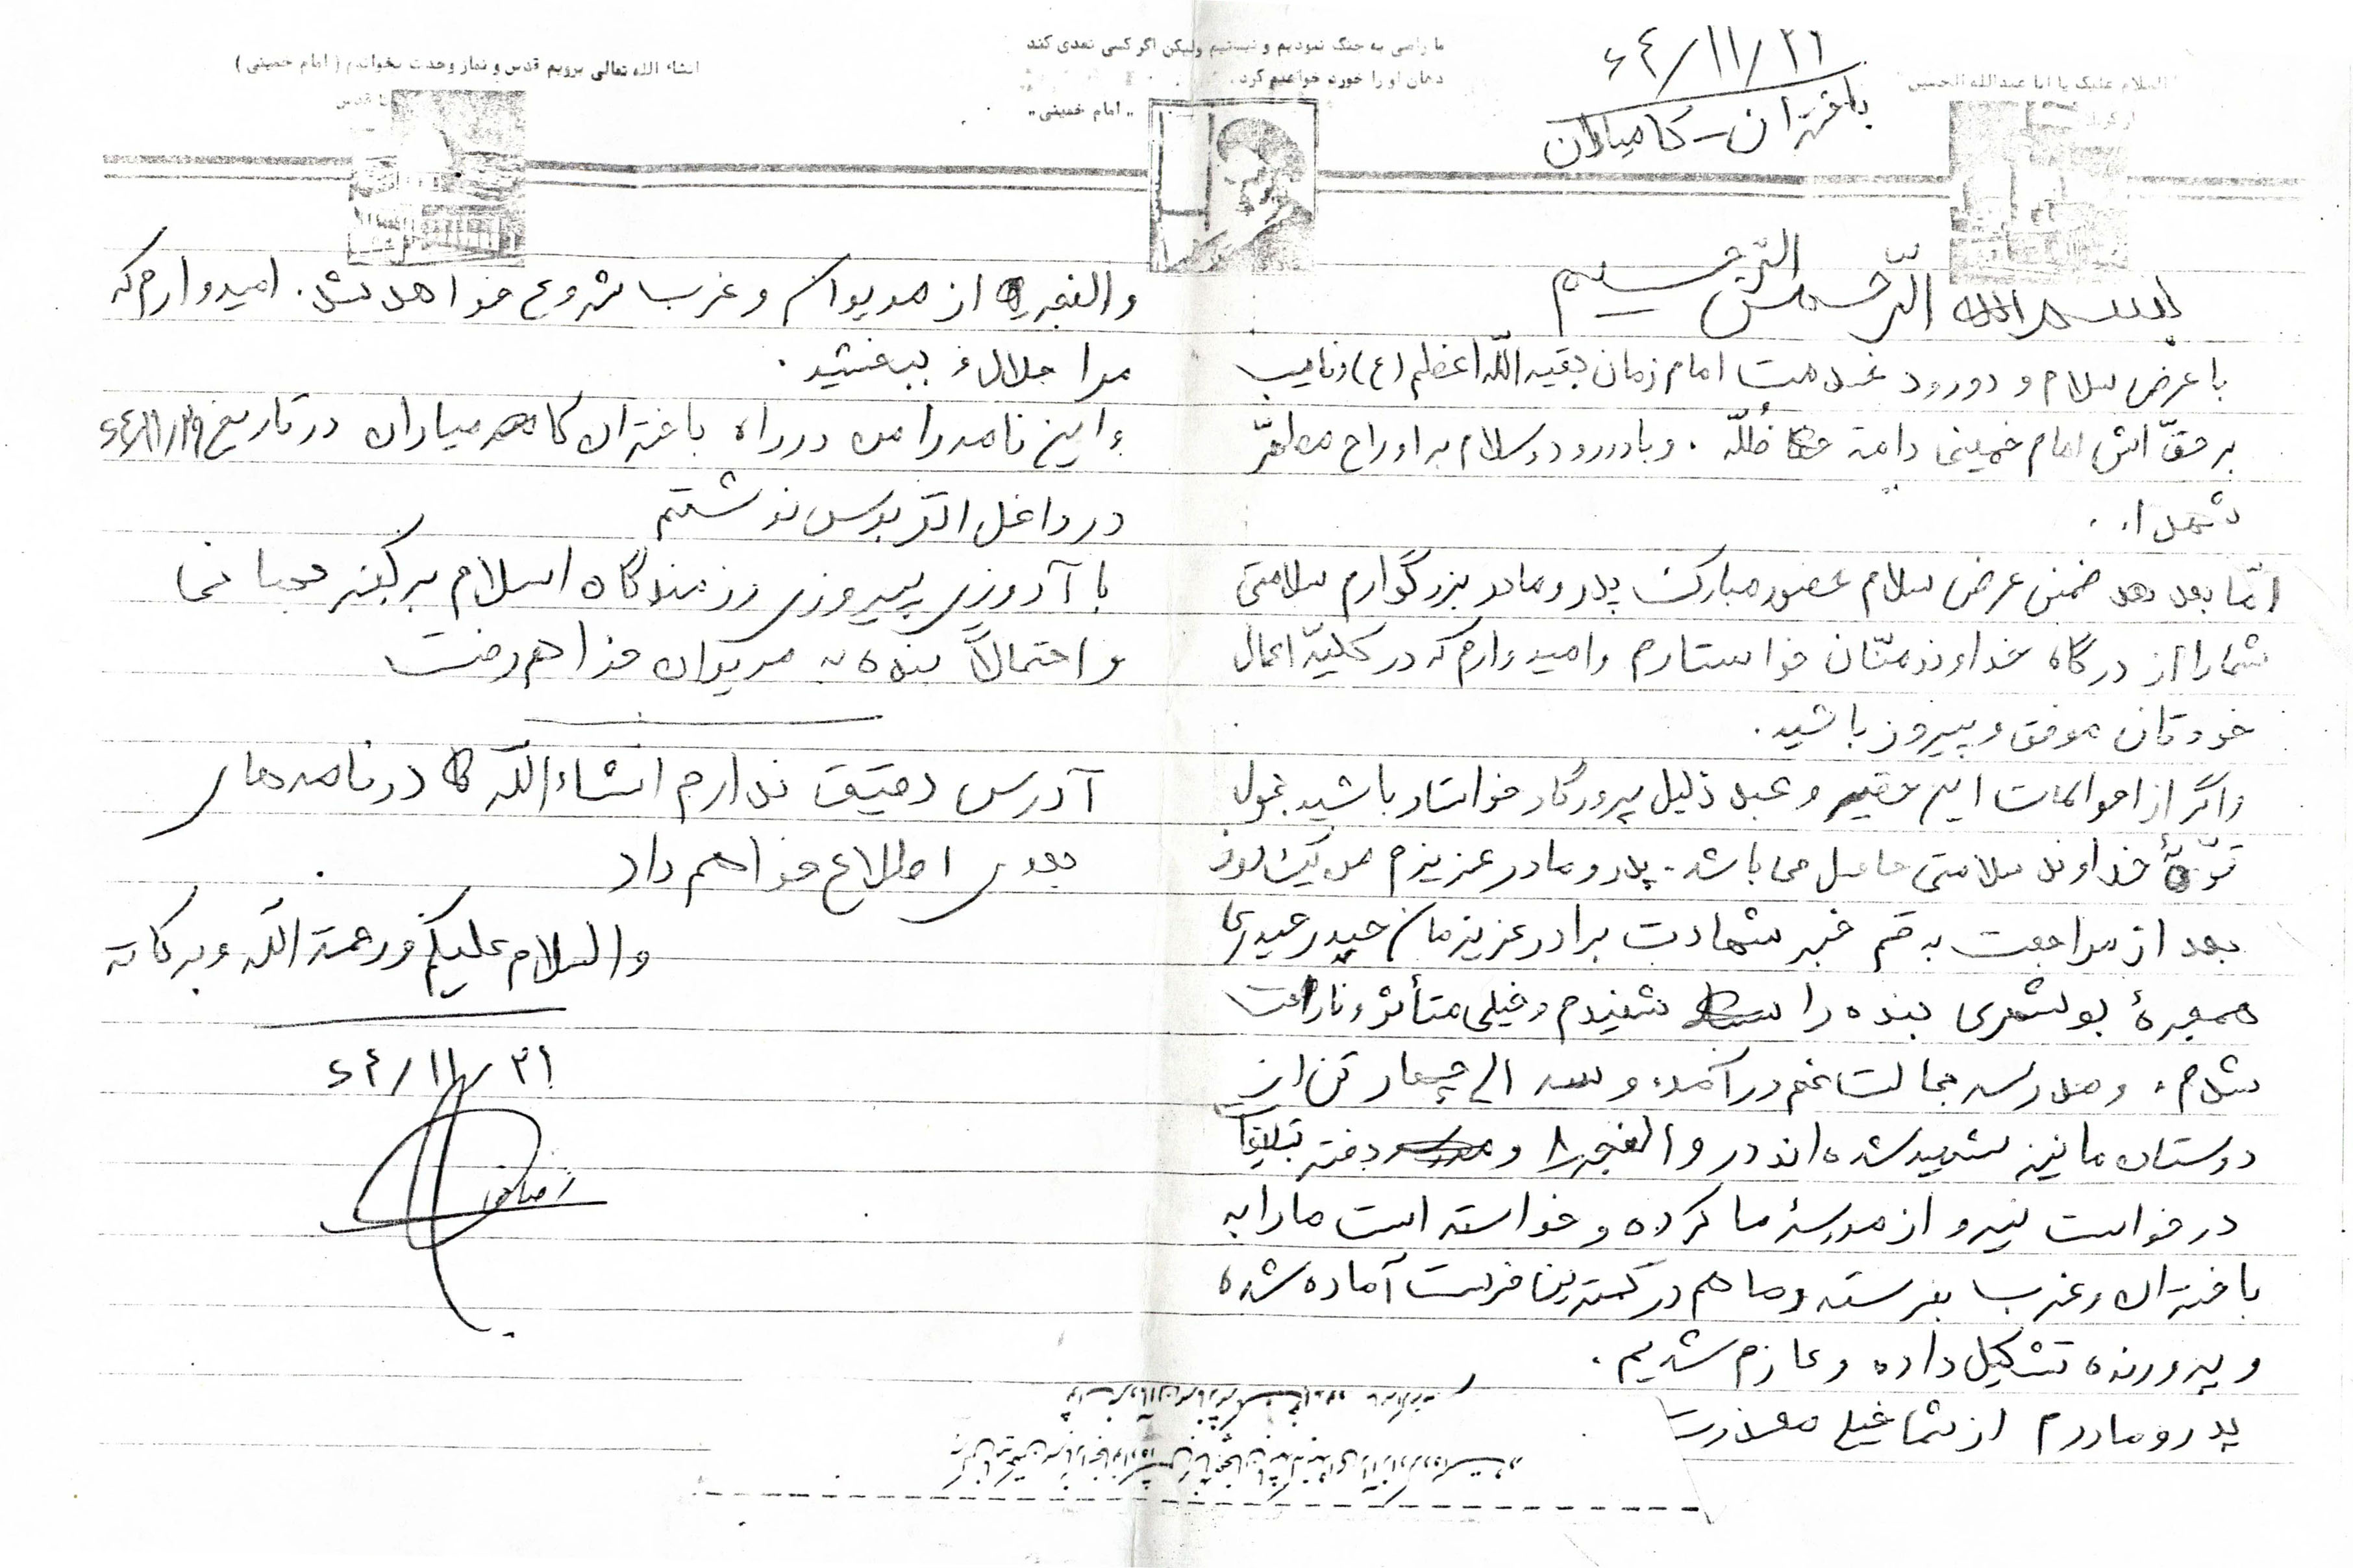 السلام علیک یا ابا عبدالله الحسین
ما راضی به جنگ نبودیم و نیستیم ولیکن اگر کسی تعدی کند
دهان او را خورد خواهیم کرد.
"امام خمینی"
انشاء الله تعالی برویم قدس و نماز وحدت بخوانیم (امام خمینی)
قدس
۶۴/۱۱/۲۱
باختران - کامیاران
بسم الله الرّحمن الرّحیم
با عرض سلام و دورود خدمت امام زمان بقیه اللّه اعظم (ع) و نایب
بر حقّ اش امام خمینی دامة ظلّله. و با دورود و سلام به اوراح مطهّر
شهداء.
امّا بعد ضمن عرض سلام حضور مبارک پدر و مادر بزرگوارم سلامتی
شما را از درگاه خداوند منّان خواستارم و امیدوارم که در کلیّه اعمال
خودتان موفق و پیروز باشید.
و اگر از احوالات این حقیر و عبد ذلیل پروردگار خواستار باشید بحول
قوّهٔ خداوند سلامتی حاصل می باشد. پدر و مادر عزیزم
بعد از مراجعت به قم خبر شهادت برادر عزیزمان حیدر حیدری
همحجرهٔ بوشهری بنده را شنیدم و خیلی متأثر و ناراحت
شدم. و مدرسه بحالت غم درآمد. و سه الی چهار تن از
دوستان ما نیز شهید شده اند در والفجر ۸ و دفتر تبلیغات
درخواست نیرو از مدرسهٔ ما کرده و خواسته است ما را به
باختران و غرب بفرسته و ما هم در کمترین فرصت آماده شده
و پرورنده تشکیل داده و عازم شدیم.
پدر و مادرم از شما خیلی معذرت
والفجر ۹ از مریوان و غرب شروع خواهد شد. امیدوارم که
مرا حلالاً ببخشید.
و این نامه را من در راه باختران کامیاران در تاریخ ۶۴/۱۱/۲۹
در داخل اتوبوس نوشتم
با آروزی پیروزی رزمندگاه اسلام بر کفر جهانی
و احتمالاً بنده به مریوان خواهم رفت
آدرس دقیق ندارم انشاءاللّه در نامه های
بعدی اطلاع خواهم داد
والسلام علیکم و رحمة اللّه و برکاته
۶۴/۱۱/۲۱